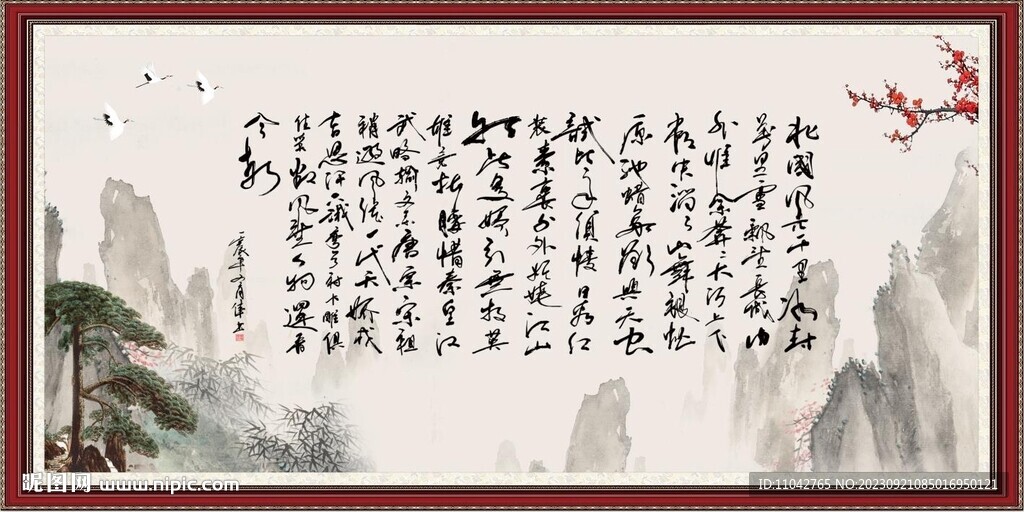 北國風光千里冰封
萬里雪飄望長城内
外惟余莽莽大河上下
頓失滔滔山舞銀蛇
原馳蠟象欲與天公
試比高須晴日看紅
裝素裹分外妖嬈江山
如此多嬌引無數英
雄競折腰惜秦皇漢
武略輸文采唐宗宋祖
稍遜風騷一代天驕成
吉思汗只識彎弓射大雕俱
往矣數風流人物還看
今朝
昵图网 www.nipic.com
ID:11042765 NO:20230921085016950121